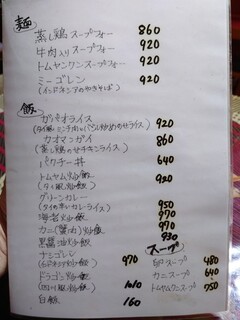 麺
蒸し鶏スープフォー 860
牛肉入りスープフォー 920
トムヤンクンスープフォー 920
ミーゴレン 920
(インドネシアのやきそば)
飯
ガパオライス 920
(タイ風ミンチ肉とバジル炒めのせライス)
カオマンガイ 860
(蒸し鶏のせチキンライス)
パクチー丼 640
トムヤム炒飯 920
(タイ風炒飯)
グリーンカレー 950
(タイの辛いカレーライス)
海老炒飯 970
カニ(蟹)炒飯 970
黒醤油炒飯
スープ
ナシゴレン 970
卵スープ 480
(インドネシア炒飯)
カニスープ 640
ドラゴン炒飯 1010
トムヤムクンスープ 750
(四川風炒飯)
白飯 160